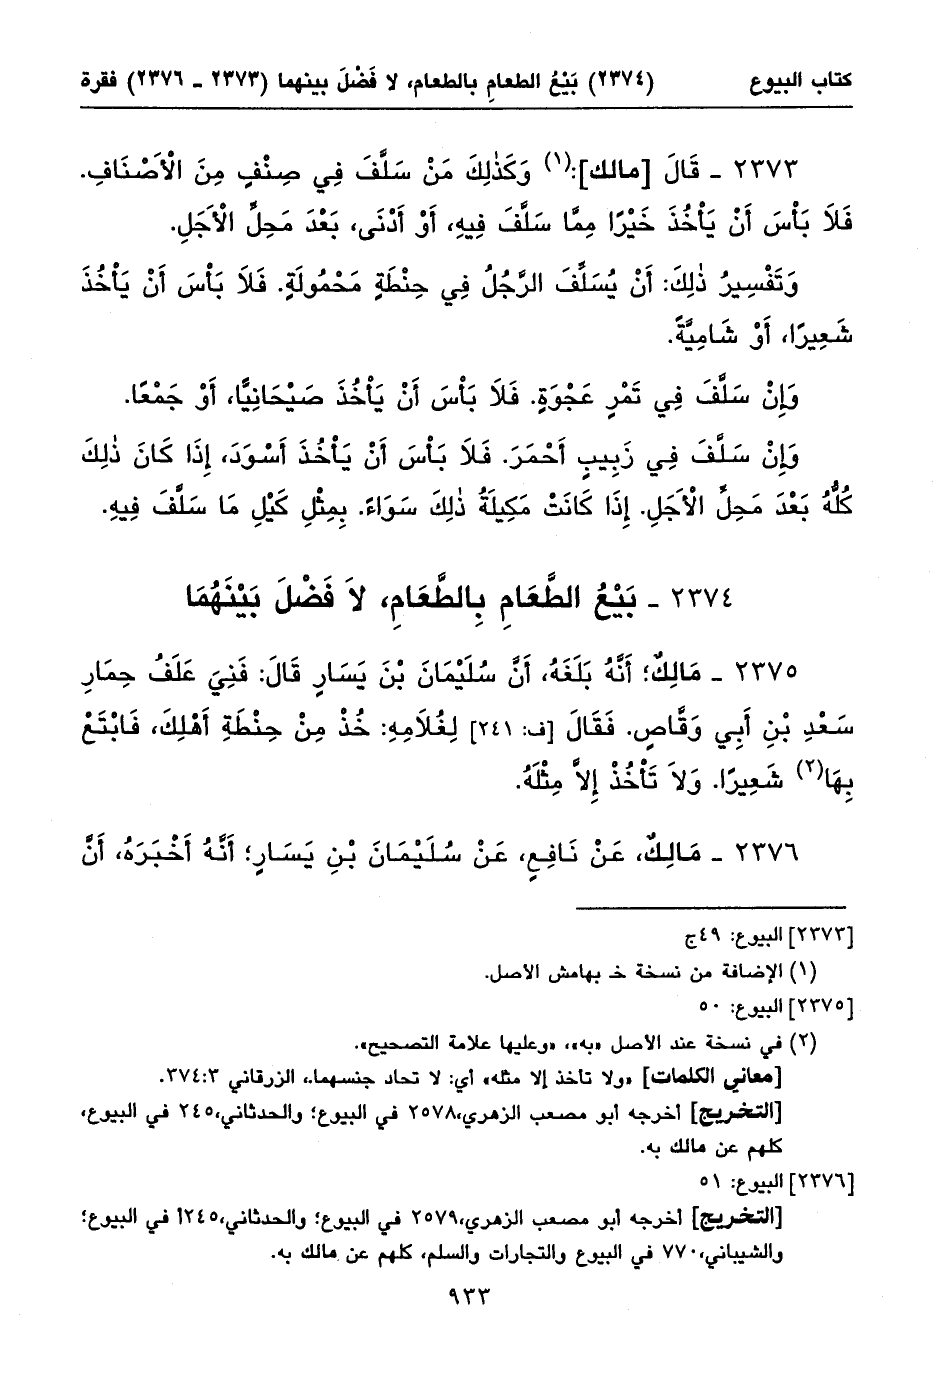 كتاب البيوع (٢٣٧٤) بَيْعُ الطعامِ بالطعام، لا فَضْلَ بينهما (٢٣٧٣ ـ ٢٣٧٦) فقرة
٢٣٧٣ ـ قَالَ [مالك]:(١) وَكَذٰلِكَ مَنْ سَلَّفَ فِي صِنْفٍ مِنَ الْأَصْنَافِ.
فَلَا بَأْسَ أَنْ يَأْخُذَ خَيْرًا مِمَّا سَلَّفَ فِيهِ، أَوْ أَدْنَى، بَعْدَ مَحِلِّ الْأَجَلِ.
وَتَفْسِيرُ ذٰلِكَ: أَنْ يُسَلِّفَ الرَّجُلُ فِي حِنْطَةٍ مَحْمُولَةٍ. فَلَا بَأْسَ أَنْ يَأْخُذَ
شَعِيرًا، أَوْ شَامِيَّةً.
وَإِنْ سَلَّفَ فِي تَمْرِ عَجْوَةٍ. فَلَا بَأْسَ أَنْ يَأْخُذَ صَيْحَانِيًّا، أَوْ جَمْعًا.
وَإِنْ سَلَّفَ فِي زَبِيبٍ أَحْمَرَ. فَلَا بَأْسَ أَنْ يَأْخُذَ أَسْوَدَ، إِذَا كَانَ ذٰلِكَ
كُلُّهُ بَعْدَ مَحِلِّ الْأَجَلِ. إِذَا كَانَتْ مَكِيلَةُ ذٰلِكَ سَوَاءً. بِمِثْلِ كَيْلِ مَا سَلَّفَ فِيهِ.
٢٣٧٤ ـ بَيْعُ الطَّعَامِ بِالطَّعَامِ، لاَ فَضْلَ بَيْنَهُمَا
٢٣٧٥ ـ مَالِكٌ؛ أَنَّهُ بَلَغَهُ، أَنَّ سُلَيْمَانَ بْنَ يَسَارٍ قَالَ: فَنِيَ عَلَفُ حِمَارِ
سَعْدِ بْنِ أَبِي وَقَّاصٍ. فَقَالَ [ف: ٢٤١] لِغُلَامِهِ: خُذْ مِنْ حِنْطَةِ أَهْلِكَ، فَابْتَعْ
بِهَا(٢) شَعِيرًا. وَلاَ تَأْخُذْ إِلاَّ مِثْلَهُ.
٢٣٧٦ ـ مَالِكٌ، عَنْ نَافِعٍ، عَنْ سُلَيْمَانَ بْنِ يَسَارٍ؛ أَنَّهُ أَخْبَرَهُ، أَنَّ
[٢٣٧٣] البيوع: ٤٩ج
(١) الإضافة من نسخة خـ بهامش الأصل.
[٢٣٧٥] البيوع: ٥٠
(٢) في نسخة عند الأصل «به»، «وعليها علامة التصحيح».
[معاني الكلمات] «ولا تأخذ إلا مثله» أي: لا تحاد جنسهما.، الزرقاني ٣٧٤:٣.
[التخريج] أخرجه أبو مصعب الزهري،٢٥٧٨ في البيوع؛ والحدثاني،٢٤٥ في البيوع،
كلهم عن مالك به.
[٢٣٧٦] البيوع: ٥١
[التخريج] أخرجه أبو مصعب الزهري،٢٥٧٩ في البيوع؛ والحدثاني،٢٤٥أ في البيوع؛
والشيباني،٧٧٠ في البيوع والتجارات والسلم، كلهم عن مالك به.
٩٣٣